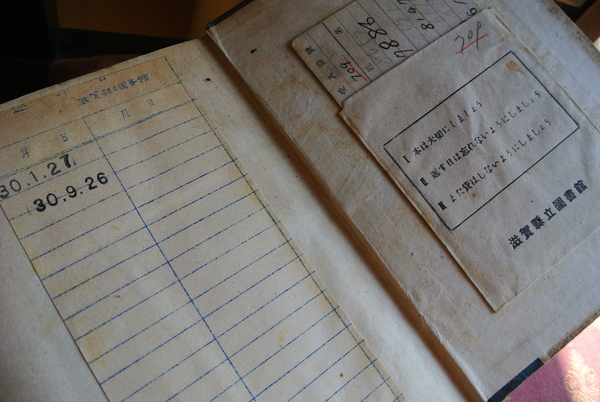 滋賀縣立圖書館
月 日
月 日
30.1.27
30.9.26
7886
8147
709
209
I 本は大切にしましょう
II 返す日は忘れないようにしましょう
III また貸はしないようにしましょう
滋賀縣立圖書館